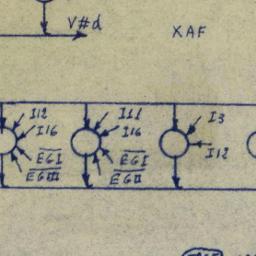 V#d
XAF
I12
I16
EGI
EGIII
I11
I16
EGI
EGII
I3
I12